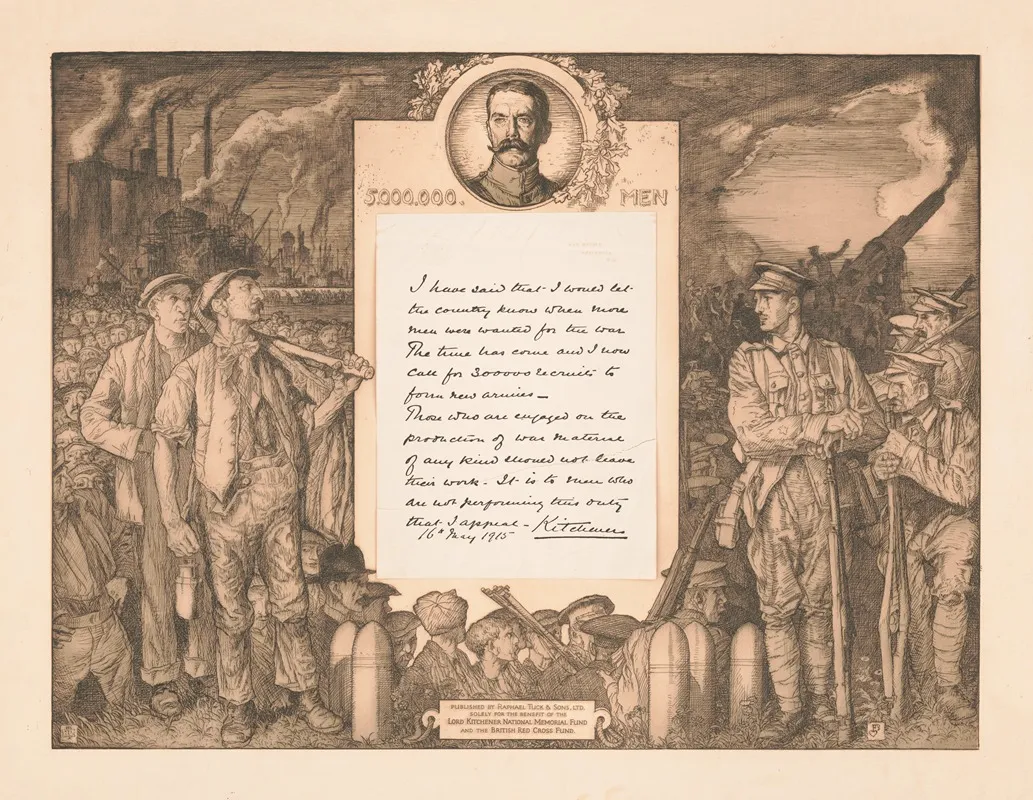 5,000,000. MEN
I have said that I would let
the country know when more
men were wanted for the war
The time has come and I now
call for 300000 recruits to
form new armies —
Those who are engaged on the
production of war materiel
of any kind should not leave
their work - It is to men who
are not performing this duty
that I appeal - Kitchener
16th May 1915
PUBLISHED BY RAPHAEL TUCK & SONS, LTD.
SOLELY FOR THE BENEFIT OF THE
LORD KITCHENER NATIONAL MEMORIAL FUND
AND THE BRITISH RED CROSS FUND.